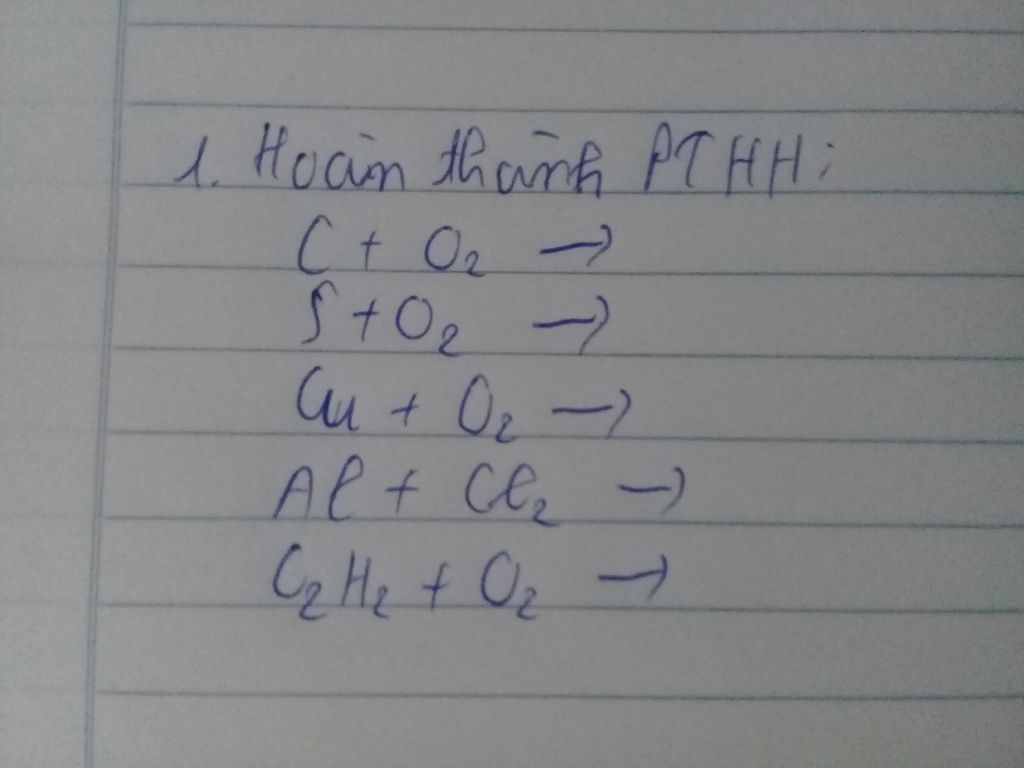 1. Hoàn thành PTHH:
C + O₂ →
S + O₂ →
Cu + O₂ →
Al + Cl₂ →
C₂H₂ + O₂ →